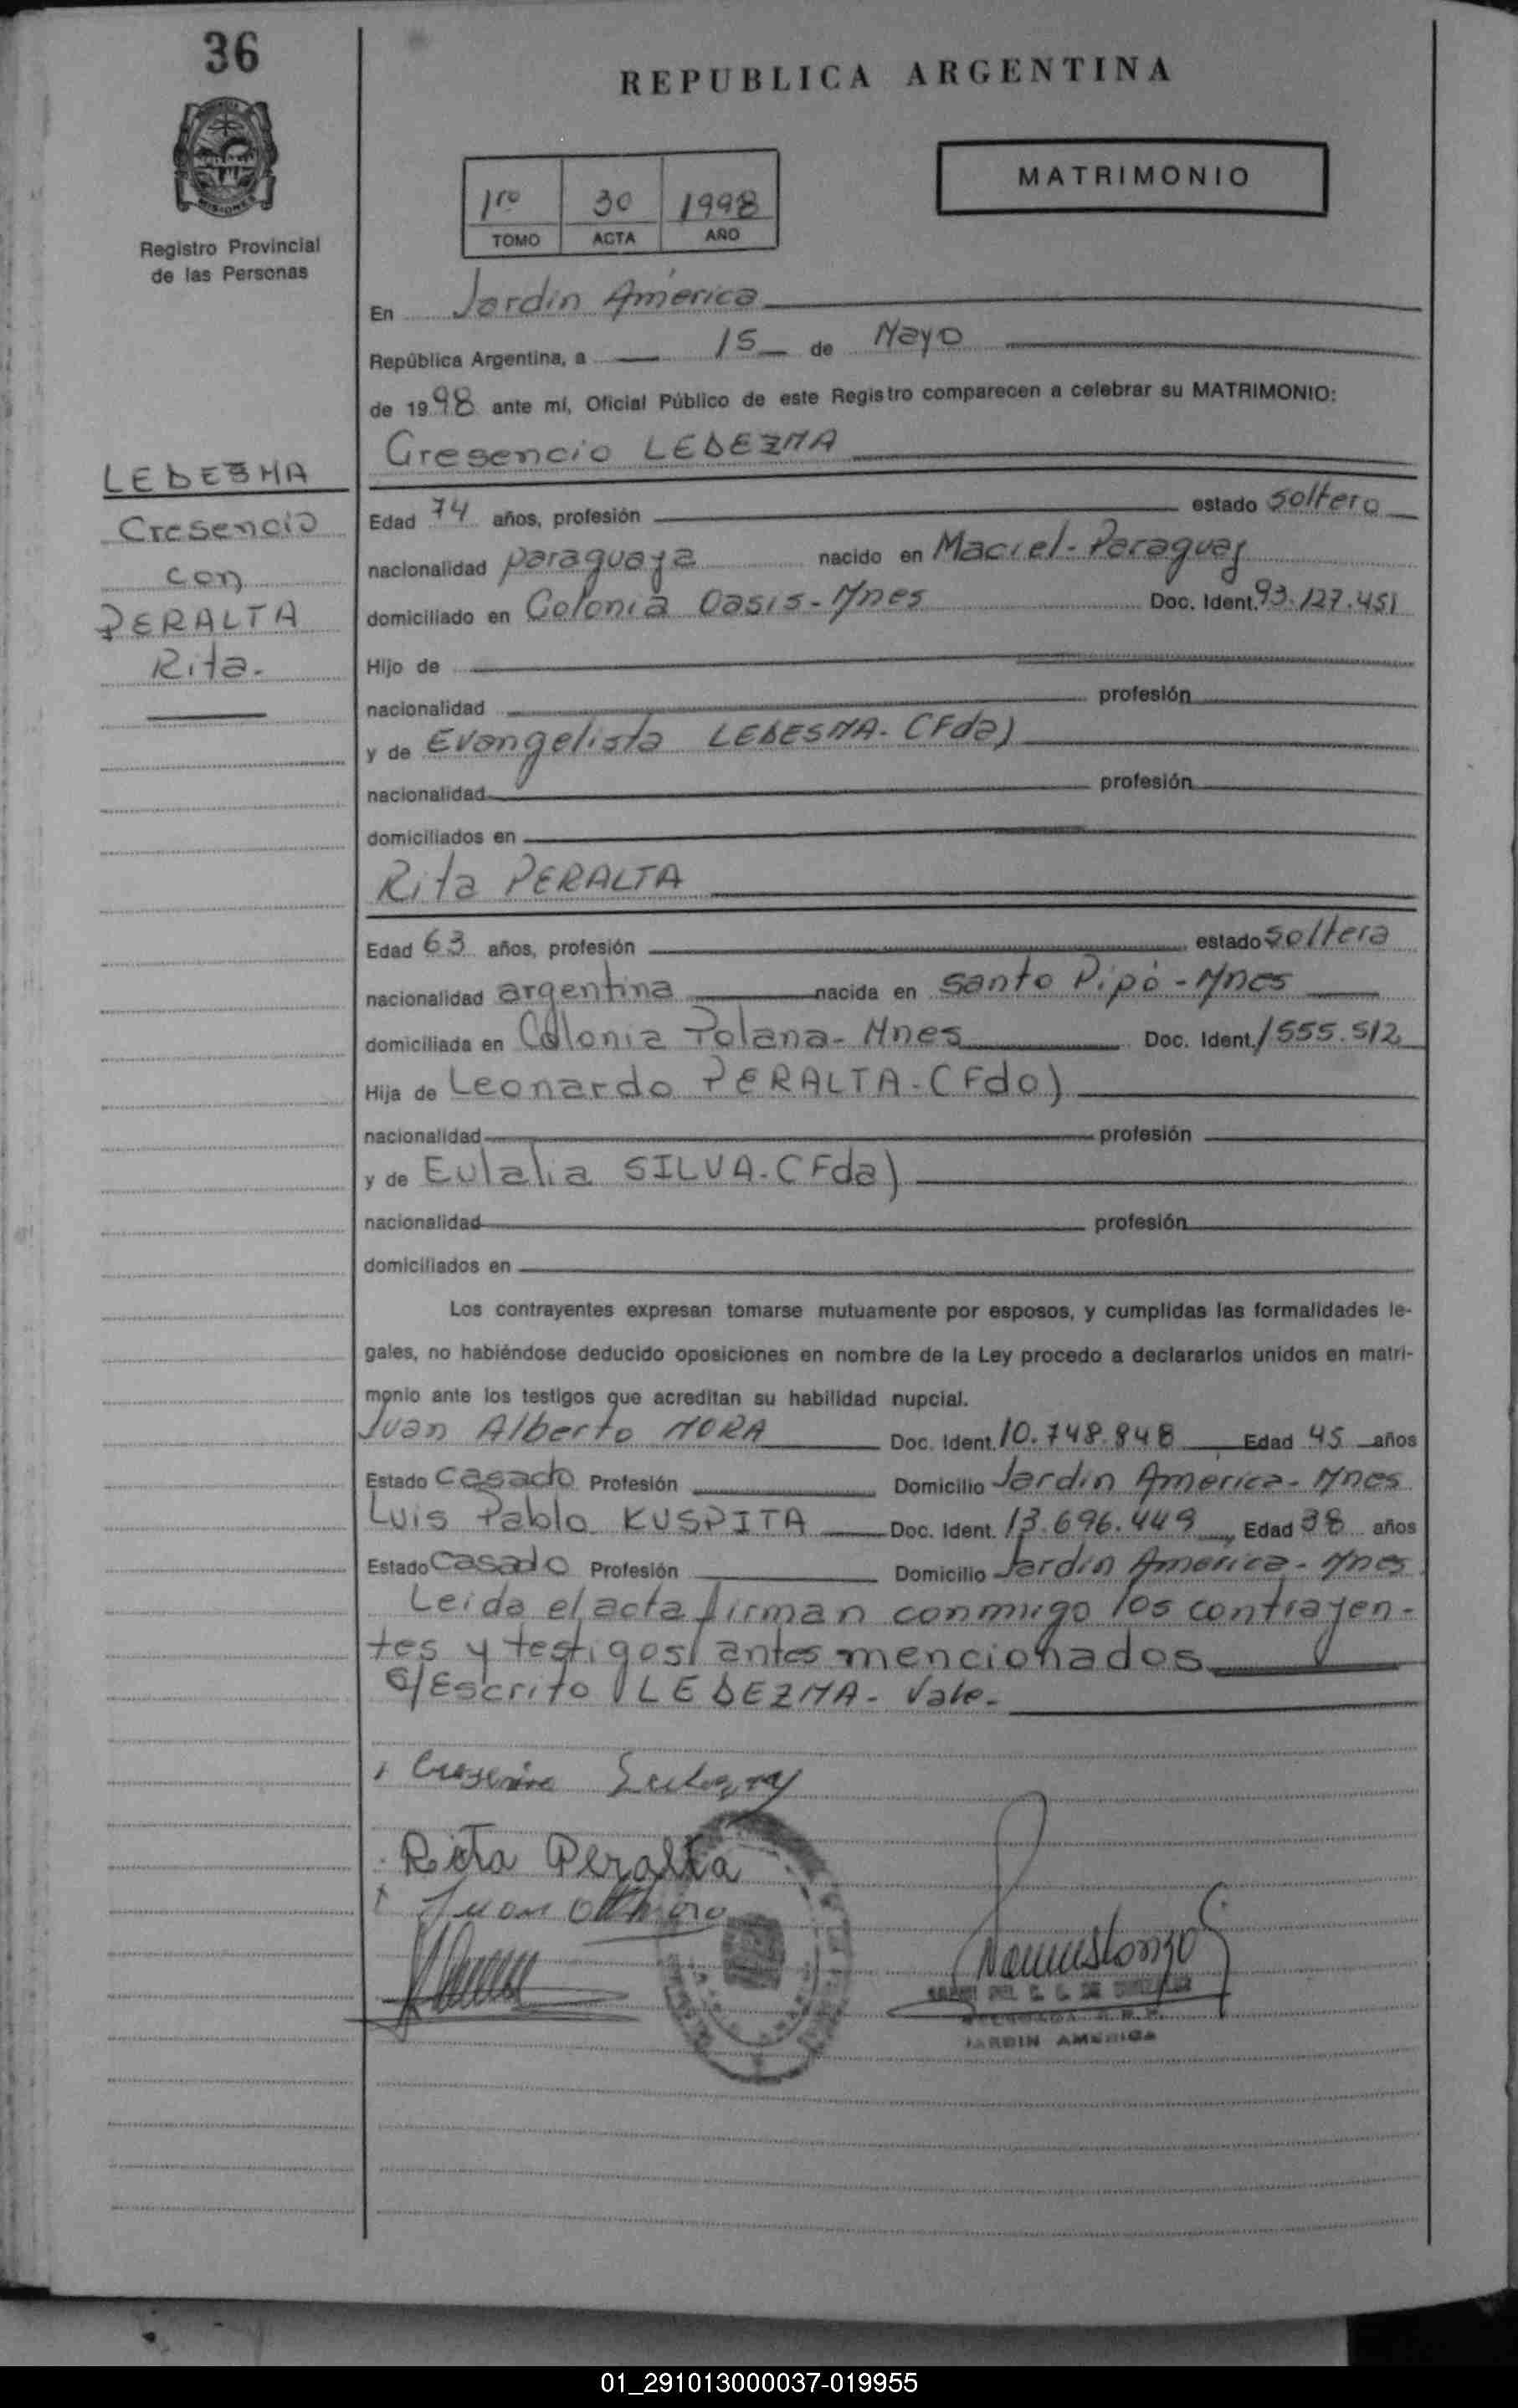 36
REPUBLICA ARGENTINA
MISIONES
Registro Provincial
de las Personas
1ro 30 1998
TOMO ACTA AÑO
MATRIMONIO
En Jardín América
República Argentina, a 15 de Mayo
de 1998 ante mí, Oficial Público de este Registro comparecen a celebrar su MATRIMONIO:
Cresencio LEDEZMA
LEDEZMA
Cresencio
con
PERALTA
Rita.
Edad 74 años, profesión estado soltero
nacionalidad paraguaya nacido en Maciel-Paraguay
domiciliado en Colonia Oasis-Mnes Doc. Ident. 93.127.451
Hijo de
nacionalidad profesión
y de Evangelista LEDESMA-(Fda)
nacionalidad profesión
domiciliados en
Rita PERALTA
Edad 63 años, profesión estado soltera
nacionalidad argentina nacida en Santo Pipó-Mnes
domiciliada en Colonia Polana-Mnes Doc. Ident. 1555.512
Hija de Leonardo PERALTA-(Fdo)
nacionalidad profesión
y de Eulalia SILVA-(Fda)
nacionalidad profesión
domiciliados en
Los contrayentes expresan tomarse mutuamente por esposos, y cumplidas las formalidades le-
gales, no habiéndose deducido oposiciones en nombre de la Ley procedo a declararlos unidos en matri-
monio ante los testigos que acreditan su habilidad nupcial.
Juan Alberto MORA Doc. Ident. 10.748.848 Edad 45 años
Estado Casado Profesión Domicilio Jardín América-Mnes
Luis Pablo KUSPITA Doc. Ident. 13.696.449 Edad 38 años
Estado Casado Profesión Domicilio Jardín América-Mnes
Leida el acta firman conmigo los contrayen-
tes y testigos antes mencionados
S/Escrito LEDEZMA- Vale-
Rita Peralta
Juan
JARDIN AMERICA
01_291013000037-019955